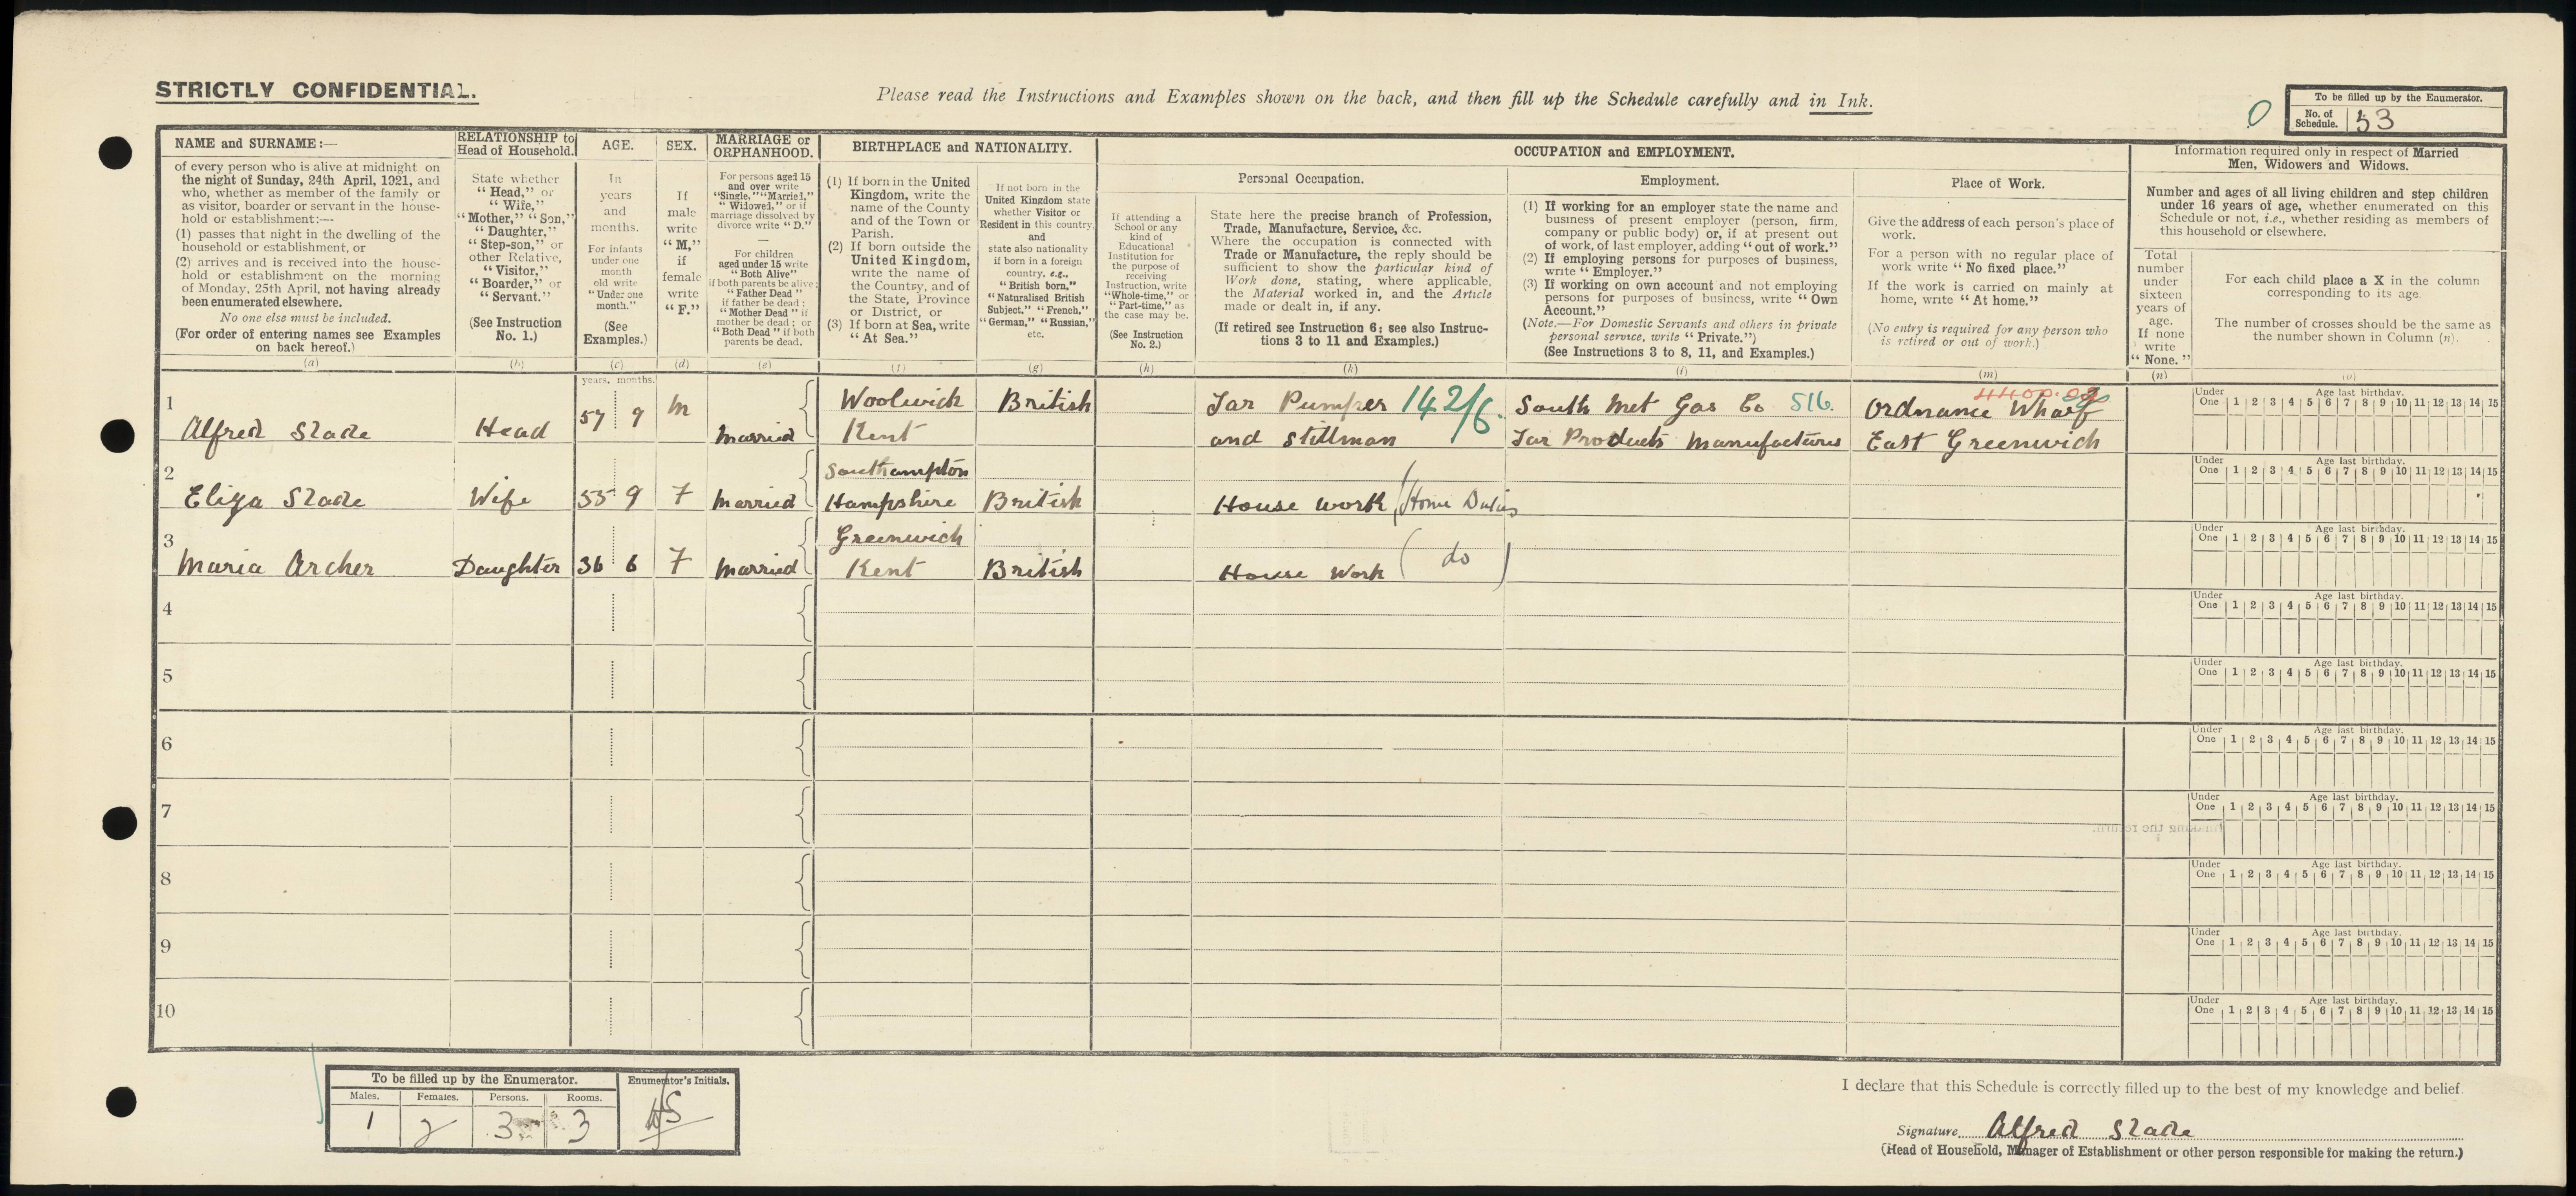 STRICTLY CONFIDENTIAL.
Please read the Instructions and Examples shown on the back, and then fill up the Schedule carefully and in Ink.
0
To be filled up by the Enumerator.
No. of Schedule. 53
NAME and SURNAME:—
of every person who is alive at midnight on
the night of Sunday, 24th April, 1921, and
who, whether as member of the family or
as visitor, boarder or servant in the house-
hold or establishment:—
(1) passes that night in the dwelling of the
household or establishment, or
(2) arrives and is received into the house-
hold or establishment on the morning
of Monday, 25th April, not having already
been enumerated elsewhere.
No one else must be included.
(For order of entering names see Examples
on back hereof.)
(a)
RELATIONSHIP to
Head of Household.
State whether
"Head," or
"Wife,"
"Mother," "Son,"
"Daughter,"
"Step-son," or
other Relative,
"Visitor,"
"Boarder," or
"Servant."
(See Instruction
No. 1.)
(b)
AGE.
In
years
and
months.
For infants
under one
month
old write
"Under one
month."
(See
Examples.)
(c)
SEX.
If
male
write
"M,"
if
female
write
"F."
(d)
MARRIAGE or
ORPHANHOOD.
For persons aged 15
and over write
"Single," "Married,"
"Widowed," or if
marriage dissolved by
divorce write "D."
—
For children
aged under 15 write
"Both Alive"
if both parents be alive;
"Father Dead"
if father be dead;
"Mother Dead" if
mother be dead; or
"Both Dead" if both
parents be dead.
(e)
BIRTHPLACE and NATIONALITY.
(1) If born in the United
Kingdom, write the
name of the County
and of the Town or
Parish.
(2) If born outside the
United Kingdom,
write the name of
the Country, and of
the State, Province
or District, or
(3) If born at Sea, write
"At Sea."
(f)
If not born in the
United Kingdom state
whether Visitor or
Resident in this country,
and
state also nationality
if born in a foreign
country, e.g.,
"British born,"
"Naturalised British
Subject," "French,"
"German," "Russian,"
etc.
(g)
OCCUPATION and EMPLOYMENT.
If attending a
School or any
kind of
Educational
Institution for
the purpose of
receiving
Instruction, write
"Whole-time," or
"Part-time," as
the case may be.
(See Instruction
No. 2.)
(h)
Personal Occupation.
State here the precise branch of Profession,
Trade, Manufacture, Service, &c.
Where the occupation is connected with
Trade or Manufacture, the reply should be
sufficient to show the particular kind of
Work done, stating, where applicable,
the Material worked in, and the Article
made or dealt in, if any.
(If retired see Instruction 6; see also Instruc-
tions 3 to 11 and Examples.)
(k)
Employment.
(1) If working for an employer state the name and
business of present employer (person, firm,
company or public body) or, if at present out
of work, of last employer, adding "out of work."
(2) If employing persons for purposes of business,
write "Employer."
(3) If working on own account and not employing
persons for purposes of business, write "Own
Account."
(Note.—For Domestic Servants and others in private
personal service, write "Private.")
(See Instructions 3 to 8, 11, and Examples.)
(l)
Place of Work.
Give the address of each person's place of
work.
For a person with no regular place of
work write "No fixed place."
If the work is carried on mainly at
home, write "At home."
(No entry is required for any person who
is retired or out of work.)
(m)
Information required only in respect of Married
Men, Widowers and Widows.
Number and ages of all living children and step children
under 16 years of age, whether enumerated on this
Schedule or not, i.e., whether residing as members of
this household or elsewhere.
Total
number
under
sixteen
years of
age.
If none
write
"None."
(n)
For each child place a X in the column
corresponding to its age.
The number of crosses should be the same as
the number shown in Column (n).
(o)
years. months.
1
Alfred Slade Head 57 9 M Married Woolwich Kent British
Tar Pumper 142/6. South Met Gas Co 516. Ordnance Wharf
and Stillman Tar Products Manufactures East Greenwich
Under One 1 2 3 4 5 6 7 8 9 10 11 12 13 14 15
Age last birthday.
2
Eliza Slade Wife 55 9 F Married Southampton Hampshire British House Work (Home Duties
Under One 1 2 3 4 5 6 7 8 9 10 11 12 13 14 15
Age last birthday.
3
Maria Archer Daughter 36 6 F Married Greenwich Kent British House Work (do)
Under One 1 2 3 4 5 6 7 8 9 10 11 12 13 14 15
Age last birthday.
4
Under One 1 2 3 4 5 6 7 8 9 10 11 12 13 14 15
Age last birthday.
5
Under One 1 2 3 4 5 6 7 8 9 10 11 12 13 14 15
Age last birthday.
6
Under One 1 2 3 4 5 6 7 8 9 10 11 12 13 14 15
Age last birthday.
7
Under One 1 2 3 4 5 6 7 8 9 10 11 12 13 14 15
Age last birthday.
8
Under One 1 2 3 4 5 6 7 8 9 10 11 12 13 14 15
Age last birthday.
9
Under One 1 2 3 4 5 6 7 8 9 10 11 12 13 14 15
Age last birthday.
10
Under One 1 2 3 4 5 6 7 8 9 10 11 12 13 14 15
Age last birthday.
To be filled up by the Enumerator.
Enumerator's Initials.
Males. Females. Persons. Rooms.
1 2 3 3
I declare that this Schedule is correctly filled up to the best of my knowledge and belief.
Signature Alfred Slade
(Head of Household, Manager of Establishment or other person responsible for making the return.)